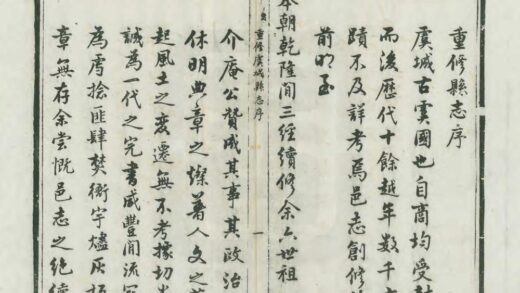 重修縣志序
虞城古虞國也自商均受封
而後歷代十餘越年數千
蹟不及詳考焉邑志創修
前明至
重修虞城縣志序
一
本朝乾隆間三經續修余六世祖
介庵公贊成其事其政治
休明典章之燦著人文之
起風土之變遷無不考據切
誠為一代之完書咸豐間流寇
為虐捻匪肆焚衙宇燼灰
章無存余嘗慨邑志之絕續